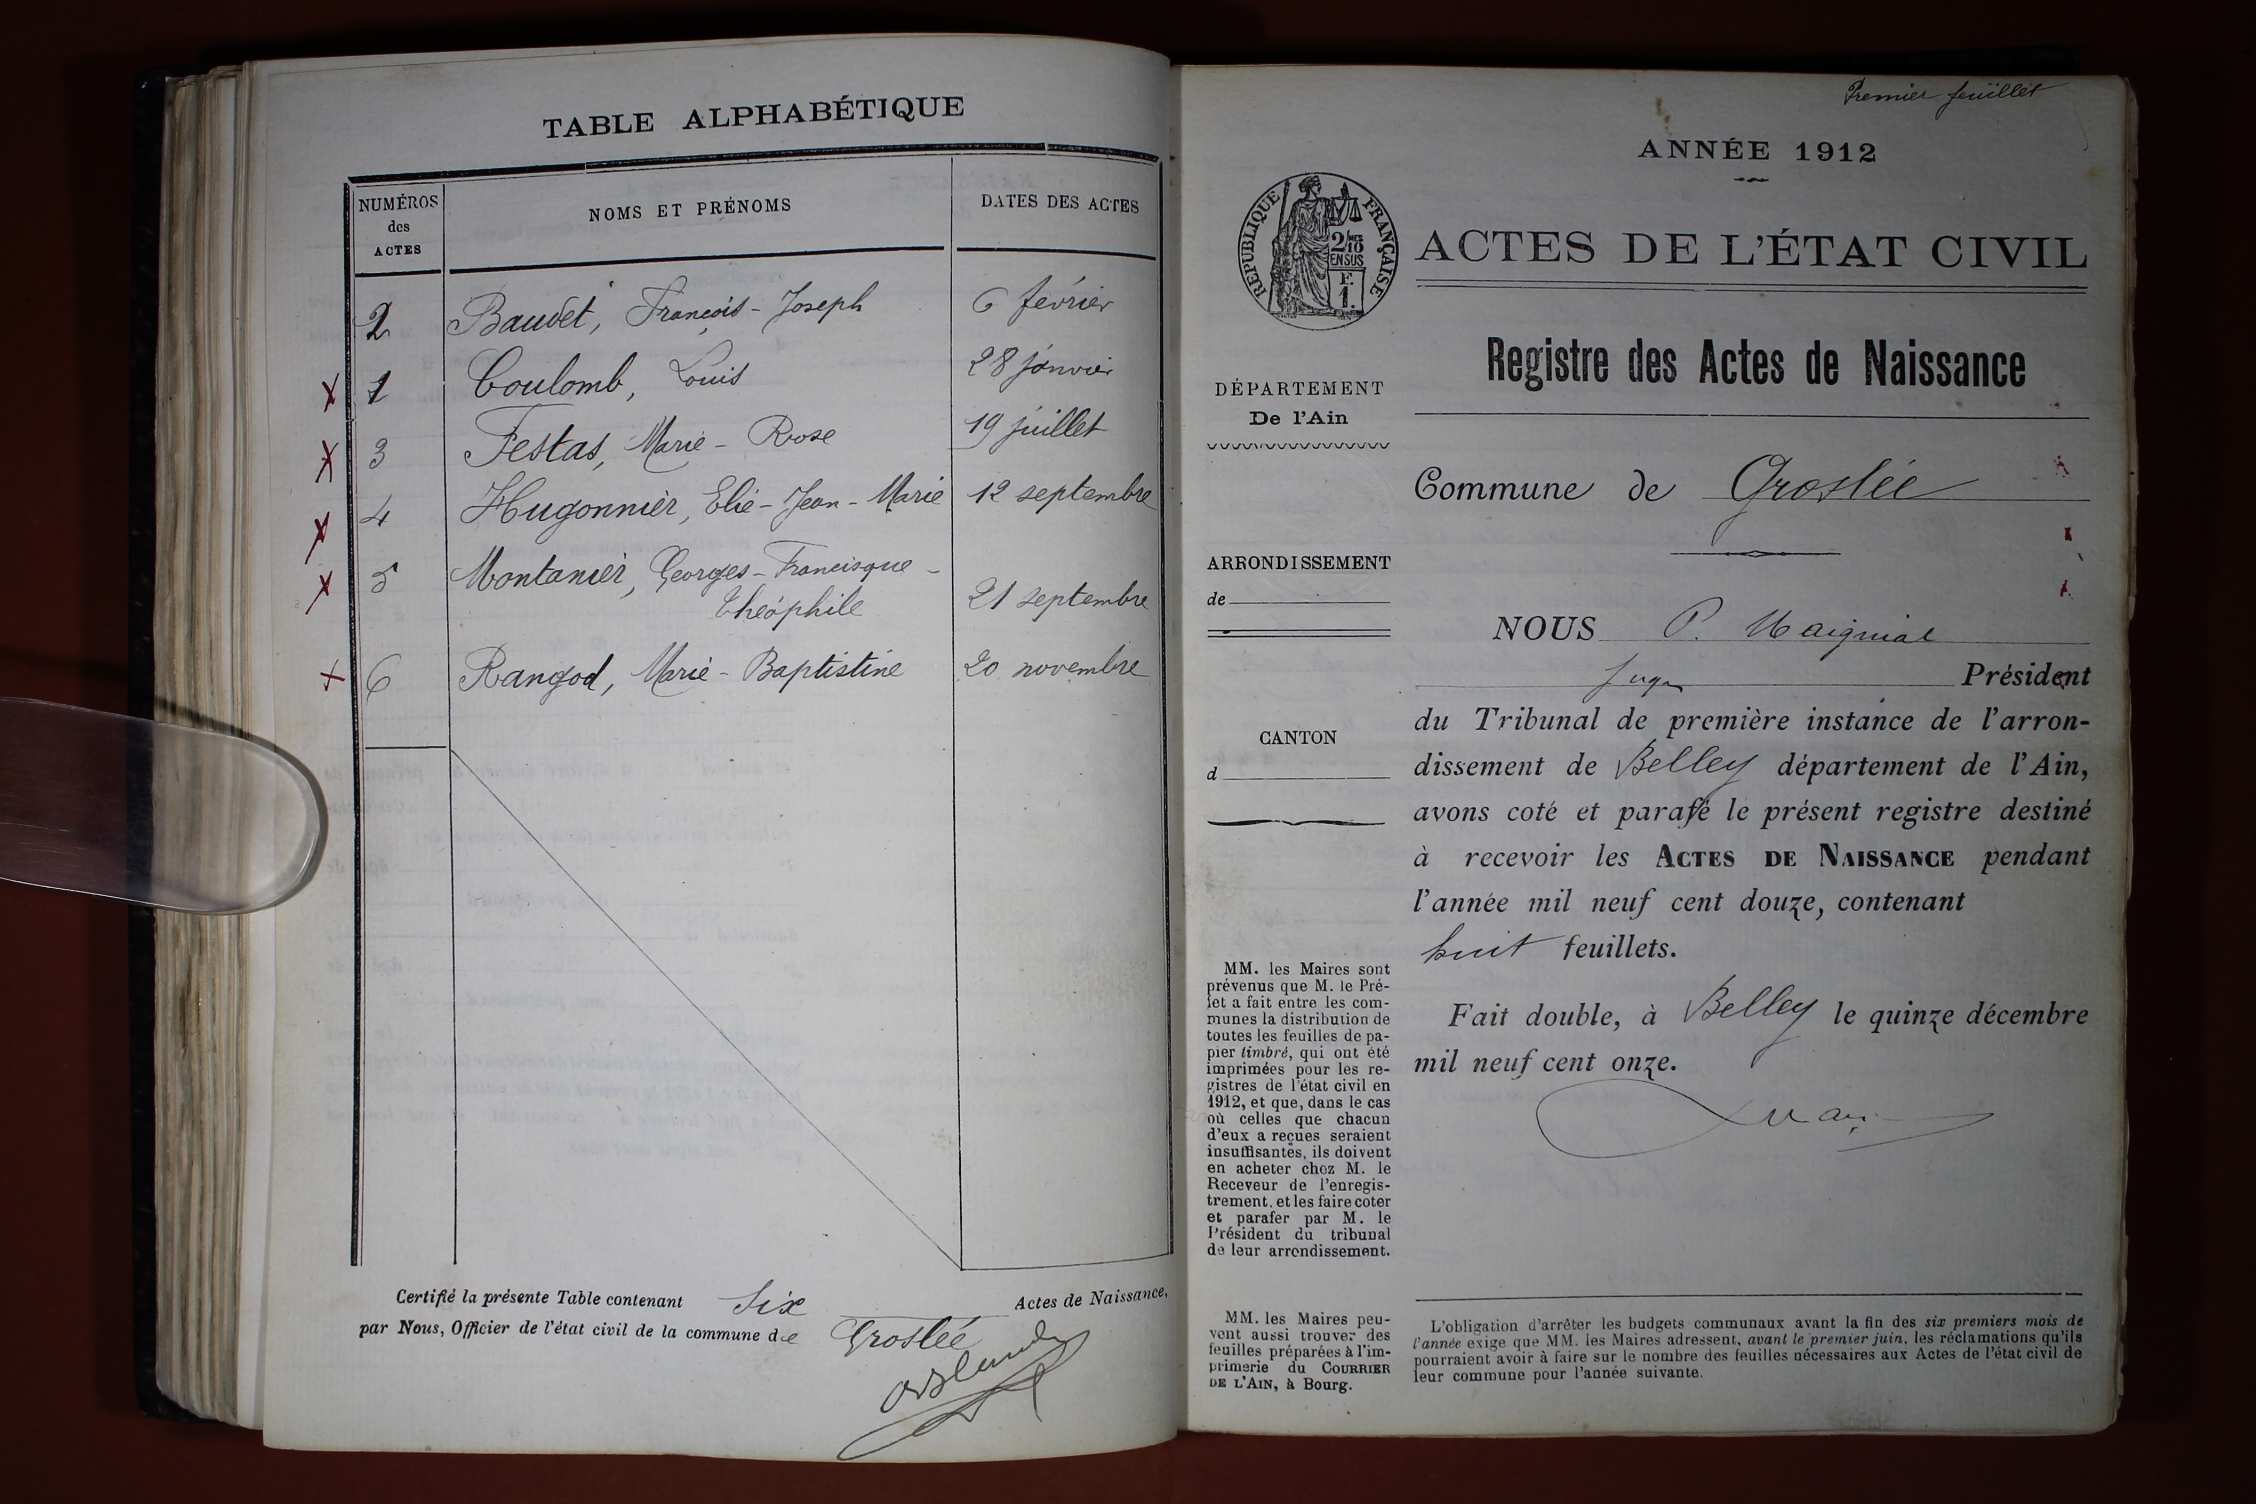 TABLE ALPHABÉTIQUE
NUMÉROS
des
ACTES
NOMS ET PRÉNOMS
DATES DES ACTES
2 Baudet, François-Joseph 6 février
1 Coulomb, Louis 28 janvier
3 Festas, Marie-Rose 19 juillet
4 Hugonnier, Elie-Jean-Marie 12 septembre
5 Montanier, Georges-Francisque-
Théophile 21 septembre
6 Rangod, Marie-Baptistine 20 novembre
Certifié la présente Table contenant six Actes de Naissance,
par Nous, Officier de l'état civil de la commune de Groslée
Premier feuillet
ANNÉE 1912
RÉPUBLIQUE FRANÇAISE
2/10 MES
EN SUS
F.
1.
ACTES DE L'ÉTAT CIVIL
Registre des Actes de Naissance
DÉPARTEMENT
De l'Ain
Commune de Groslée
ARRONDISSEMENT
de
CANTON
d
NOUS P.
Juge Président
du Tribunal de première instance de l'arron-
dissement de Belley département de l'Ain,
avons coté et parafé le présent registre destiné
à recevoir les ACTES DE NAISSANCE pendant
l'année mil neuf cent douze, contenant
huit feuillets.
Fait double, à Belley le quinze décembre
mil neuf cent onze.
MM. les Maires sont
prévenus que M. le Pré-
fet a fait entre les com-
munes la distribution de
toutes les feuilles de pa-
pier timbré, qui ont été
imprimées pour les re-
gistres de l'état civil en
1912, et que, dans le cas
où celles que chacun
d'eux a reçues seraient
insuffisantes, ils doivent
en acheter chez M. le
Receveur de l'enregis-
trement, et les faire coter
et parafer par M. le
Président du tribunal
de leur arrondissement.
MM. les Maires peu-
vent aussi trouver des
feuilles préparées à l'im-
primerie du COURRIER
DE L'AIN, à Bourg.
L'obligation d'arrêter les budgets communaux avant la fin des six premiers mois de
l'année exige que MM. les Maires adressent, avant le premier juin, les réclamations qu'ils
pourraient avoir à faire sur le nombre des feuilles nécessaires aux Actes de l'état civil de
leur commune pour l'année suivante.